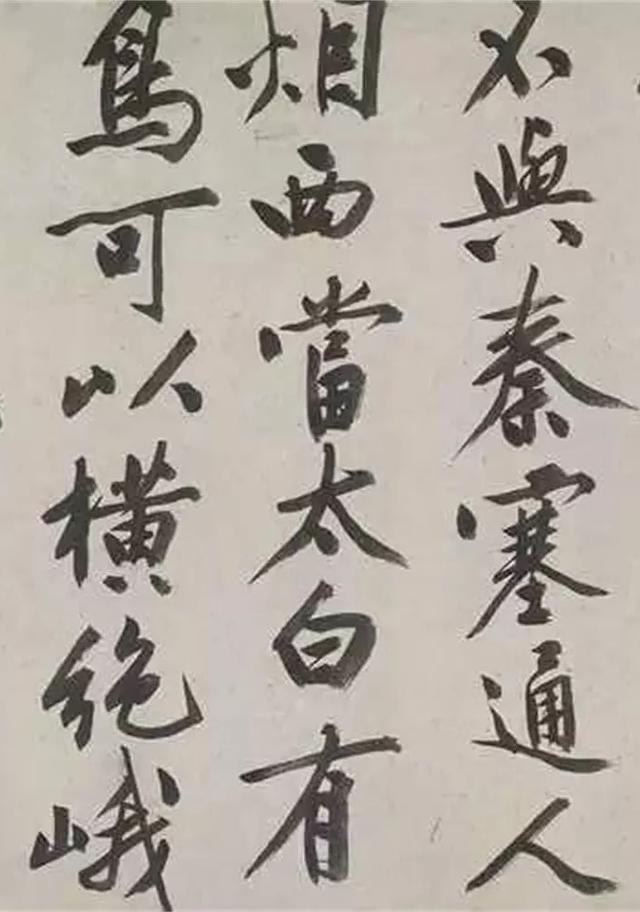 不與秦塞通人
烟西當太白有
鳥可以橫絶峨